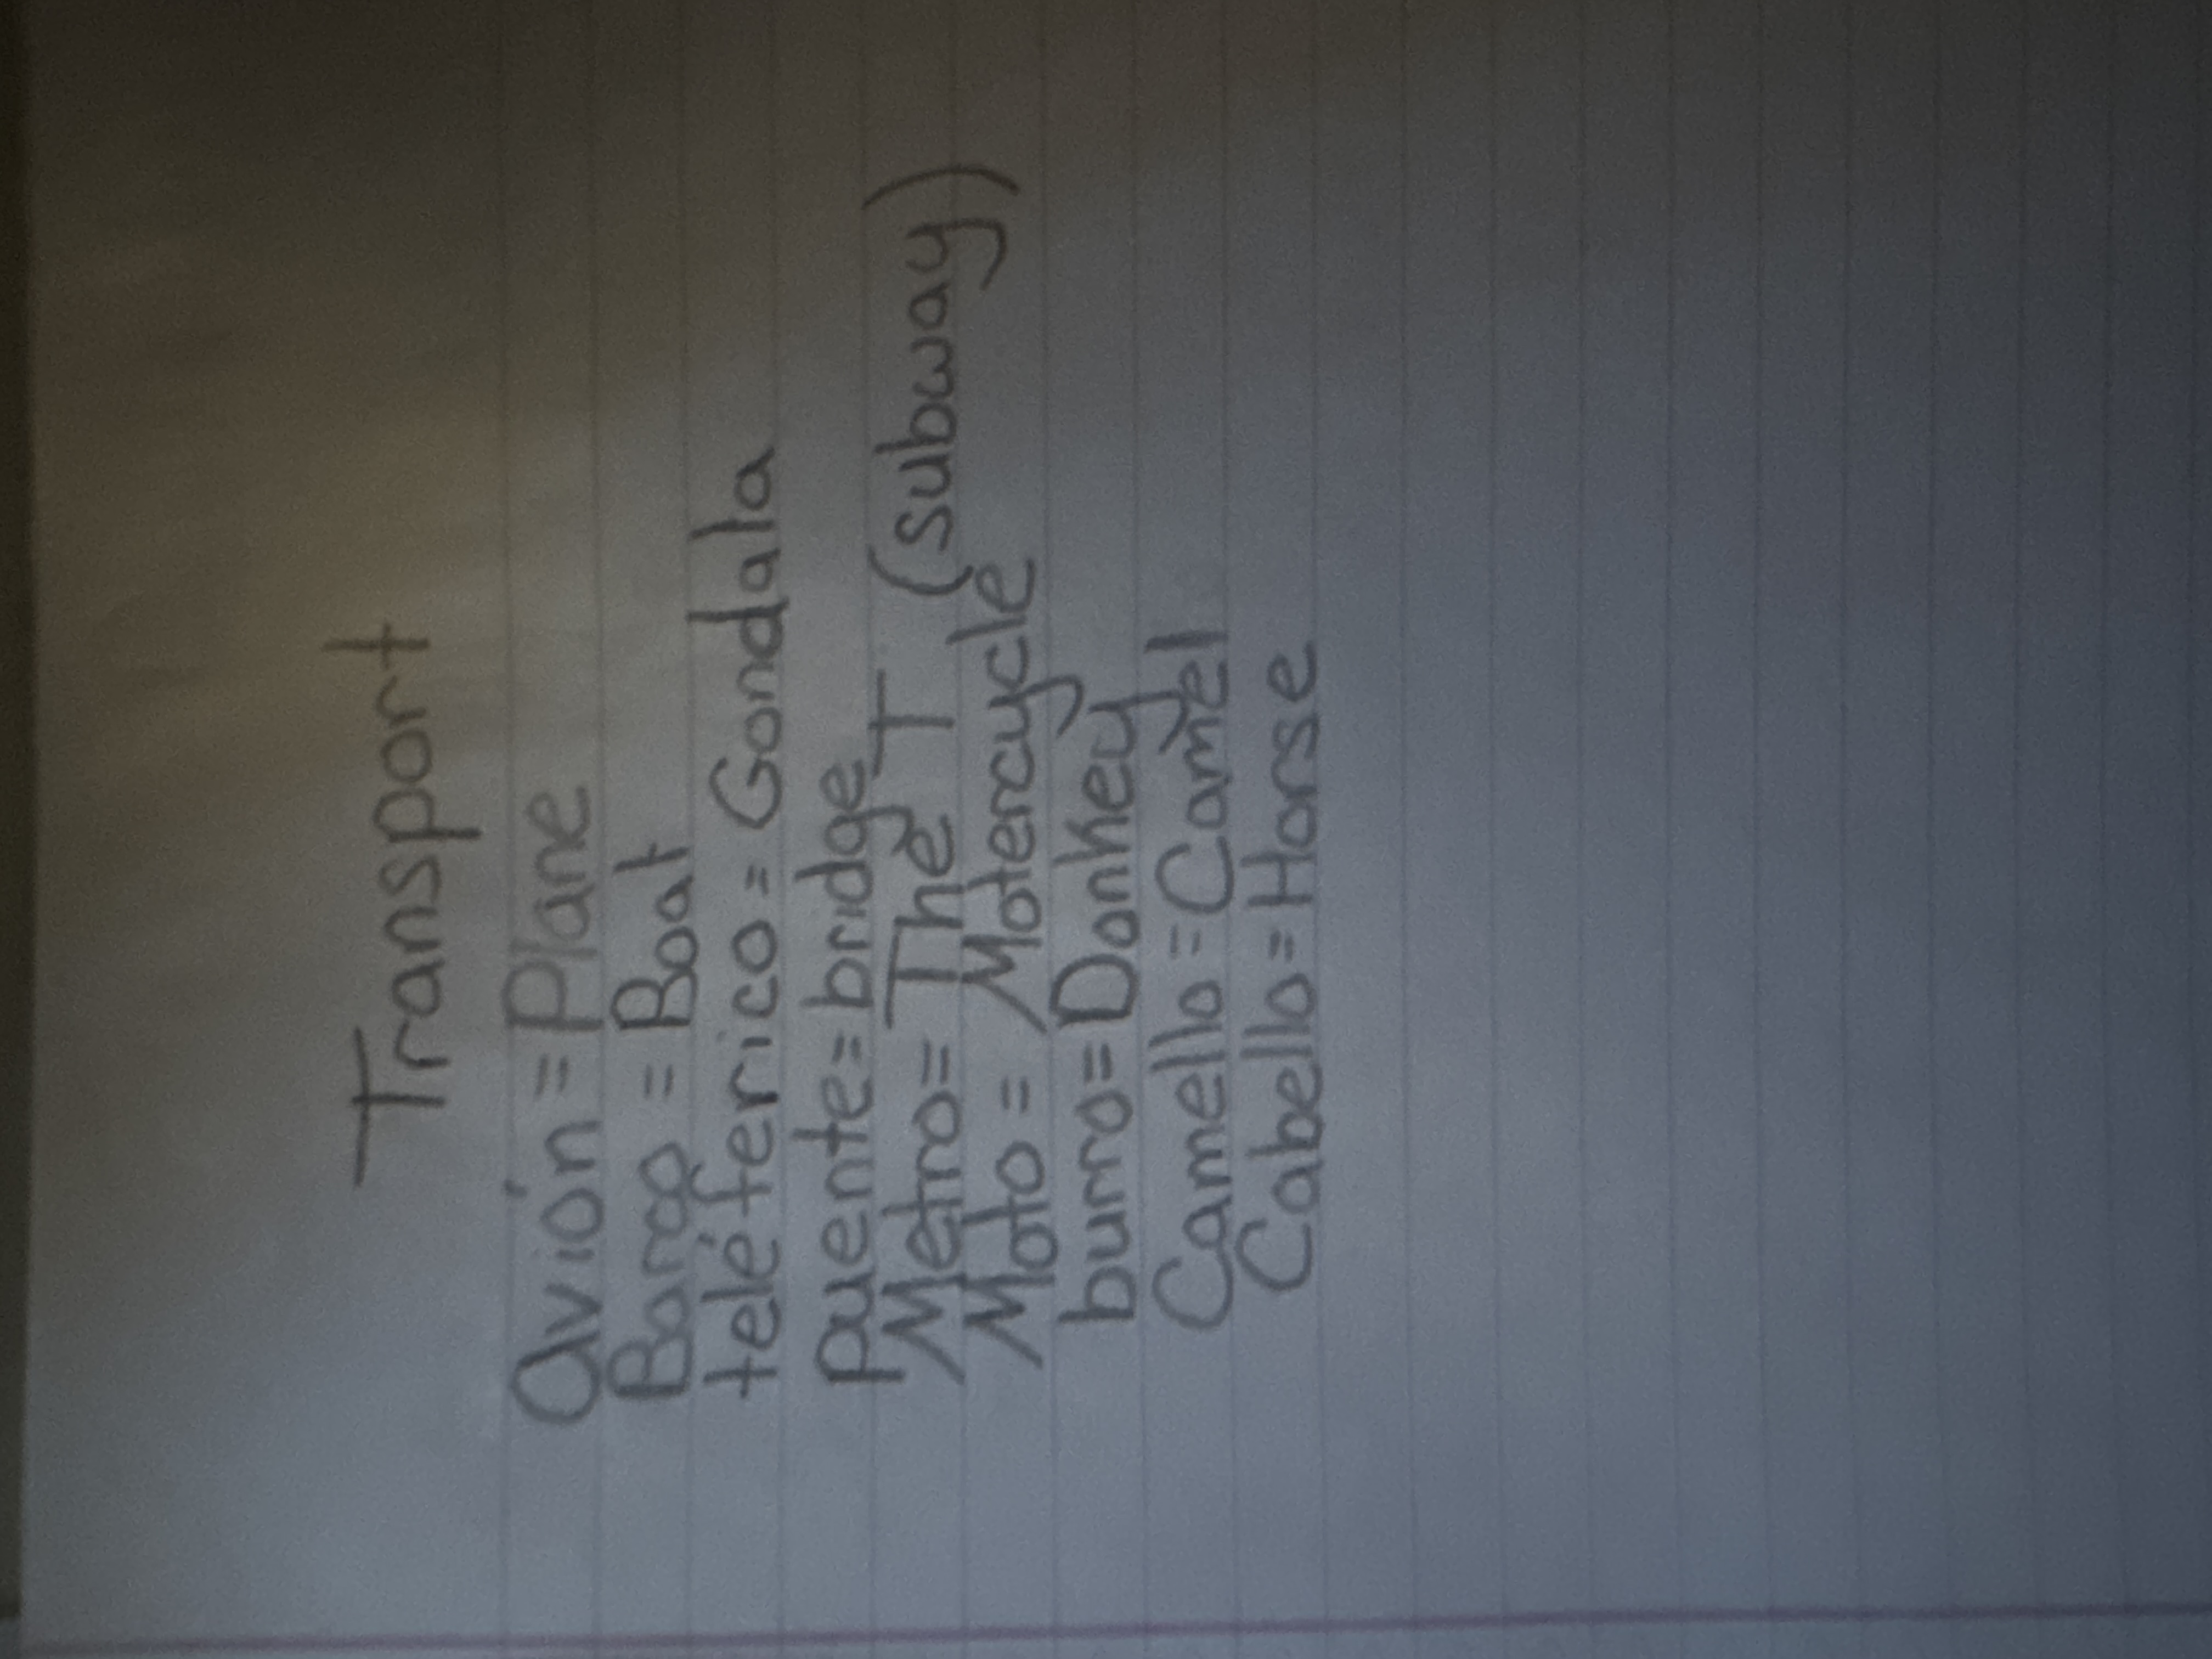 Transport
Avión = Plane
Barco = Boat
teléferico = Gondala
puente = bridge
Metro = The T (subway)
Moto = Motercycle
burro = Donkey
Camello = Camel
Cabello = Horse